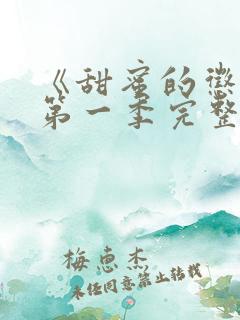 《甜蜜的惩
第一季完整
梅惠杰
未经同意禁止转载